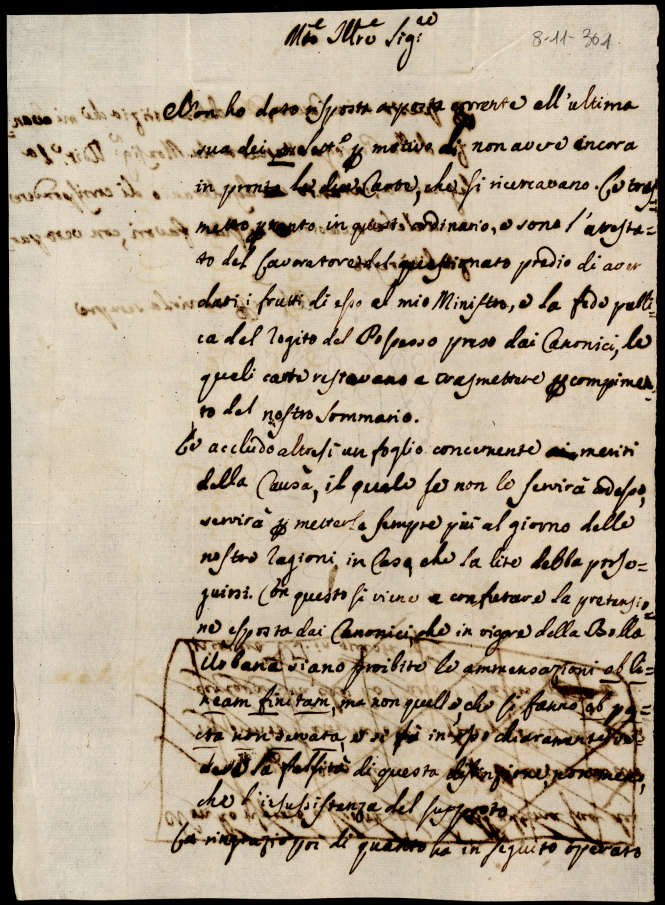 Mto Illre Sigre
8-11-361.
Non ho dato risposta a posta corrente all'ultima
sua dei motivo di non avere ancora
in pronto le due Carte, che si ricercavano. Le tras-
metto pronto in questo ordinario, e sono l'attesta-
to del Lavoratore del questionato predio di aver
dati i frutti di esso al mio Ministro, e la fede publi-
ca del Rogito del Possesso preso dai Canonici, le
quali carte restavano a trasmettere p compimen-
to del nostro Sommario.
Le accludo altresi un foglio concernente ai meriti
della Causa, il quale se non le servirà adesso,
servirà p metterla sempre più al giorno delle
nostre ragioni, in Caso, che la lite debba prose-
guirsi. Con questo si viene a confutare la pretensio-
ne esposta dai Canonici, che in vigore della Bolla
Urbana siano proibite le ammensazioni ob li-
neam finitam, ma non quelle, che si fanno ob pa-
cta non servata, e si fà in esso chiaramente ve-
dere la falsità di questa distinzione, nonmeno,
che l'insussistenza del supposto.
La ringrazio poi di quanto ha in seguito operato